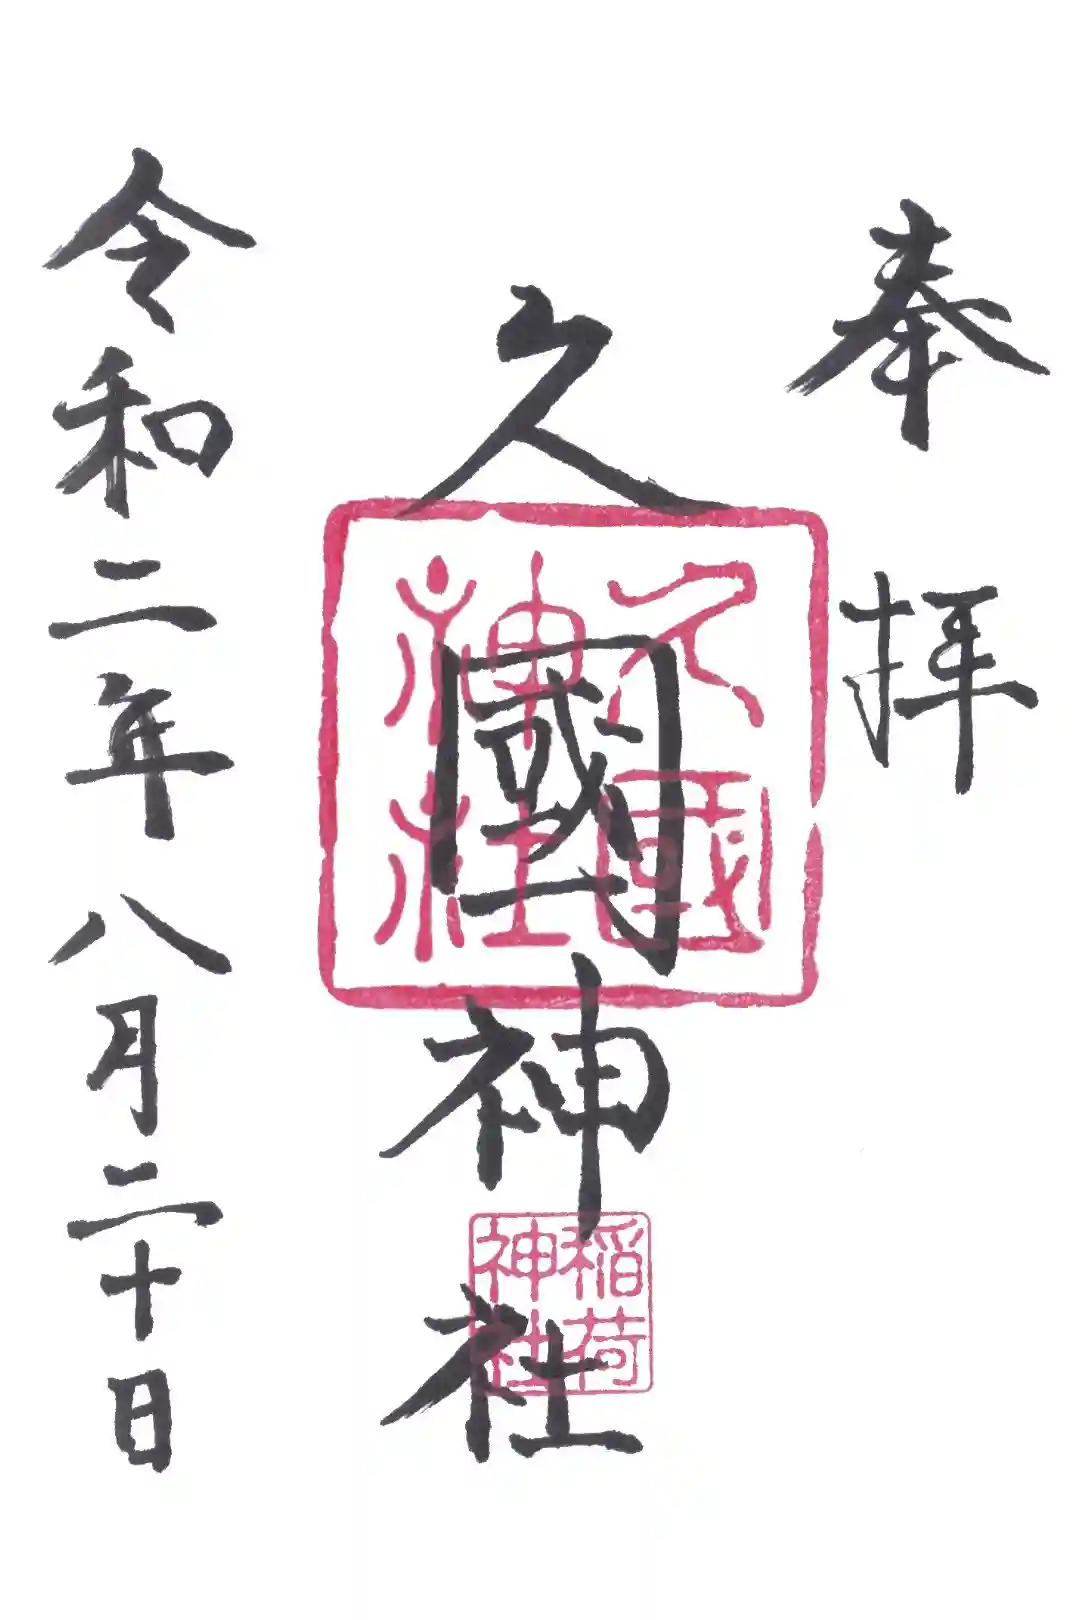 奉拝
久國神社
久國神社
稲荷神社
令和二年八月二十日